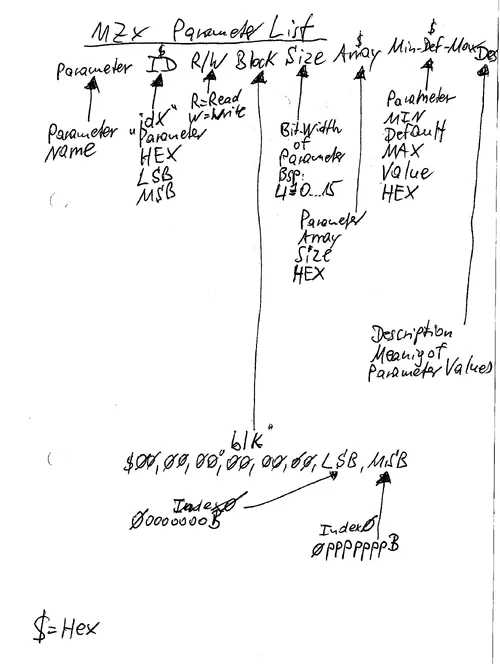 MZx Parameter List
$ $ $
Parameter ID R/W Block Size Array Min-Def-Max Des
R=Read
W=Write
Parameter
Name
"idx"
Parameter
HEX
LSB
MSB
Bit-Width
of
Parameter
Bsp:
4≙0...15
Parameter
Array
Size
HEX
Parameter
MIN
Default
MAX
Value
HEX
Description
Meanig of
Parameter Values
"blk"
$00,00,00,00,00,00,LSB,MSB
Index0
00000000B
Index0
0PPPPPPPB
$=Hex